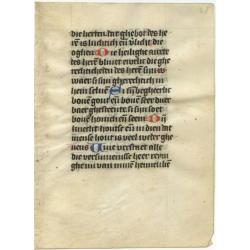 die herten dat ghebot des he
ren is luchtich en̄ v̓licht die
oghen Die heilighe anxt
des herē blivet ewelic die ghe
rechticheden des herē sijn w
waer si sijn gherechtich in
hem selve Si sijn begheerlic
boven gout en̄ boven seer duer
baer ghesteente en̄ si sijn soet
boven honich en̄ seem Dijn
knecht houtse en̄ in dien dat
mense hout is veel weder ghe
vens Wie verstaet alle
die versumenisse heer reyni
ghe mi van minē heimelike